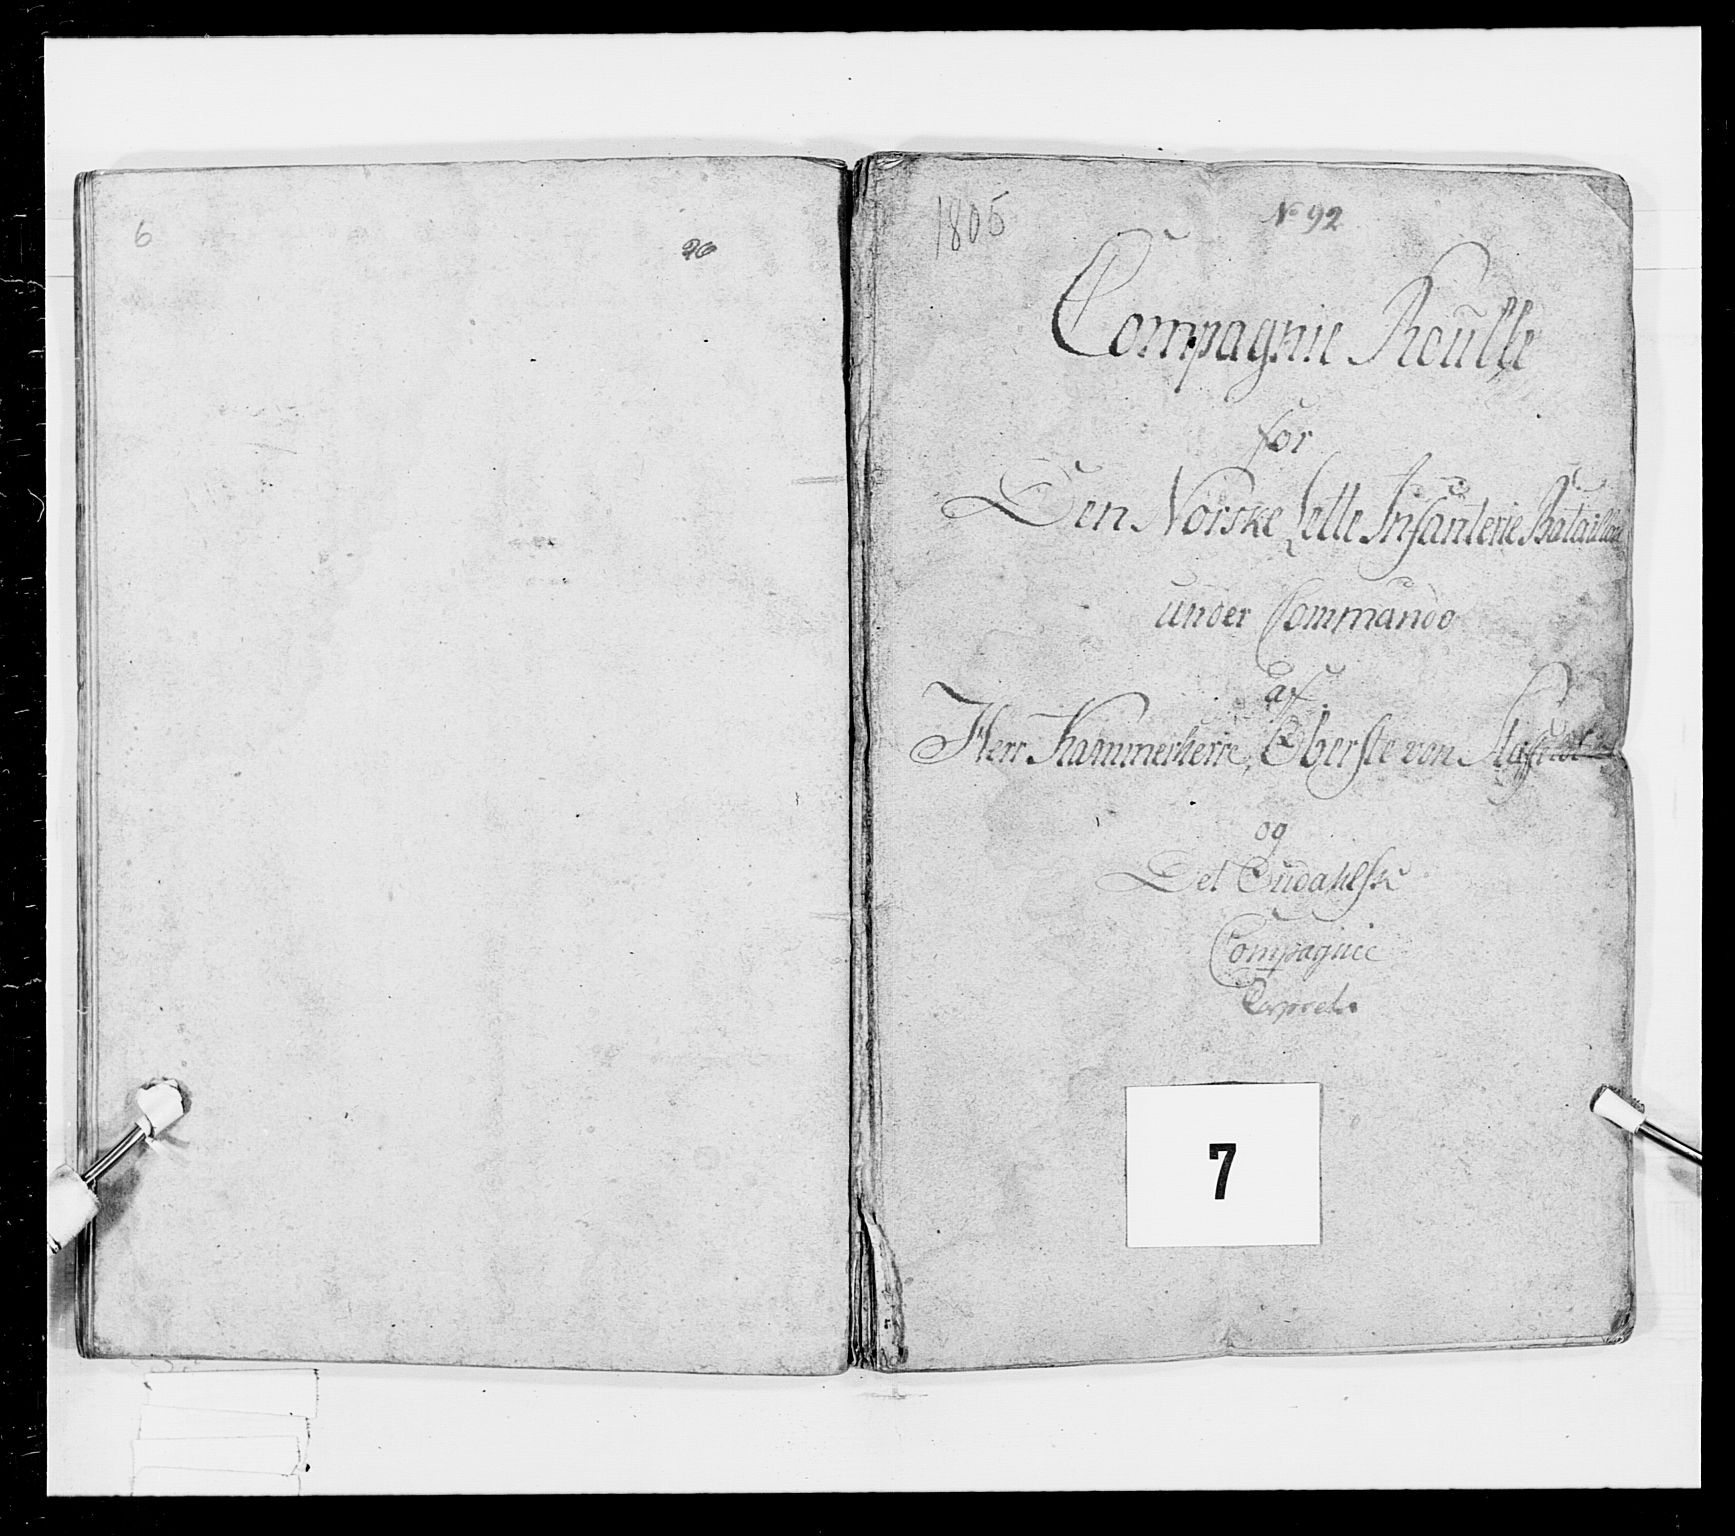 6
26
1805
No 92
Compagnie Roulle
for
Den Norske Lette Infanterie Batallion
under Commando
af
Herr Kammerherre, Oberste von Staffeldt
og
Det Oudahlske
Compagnie
7